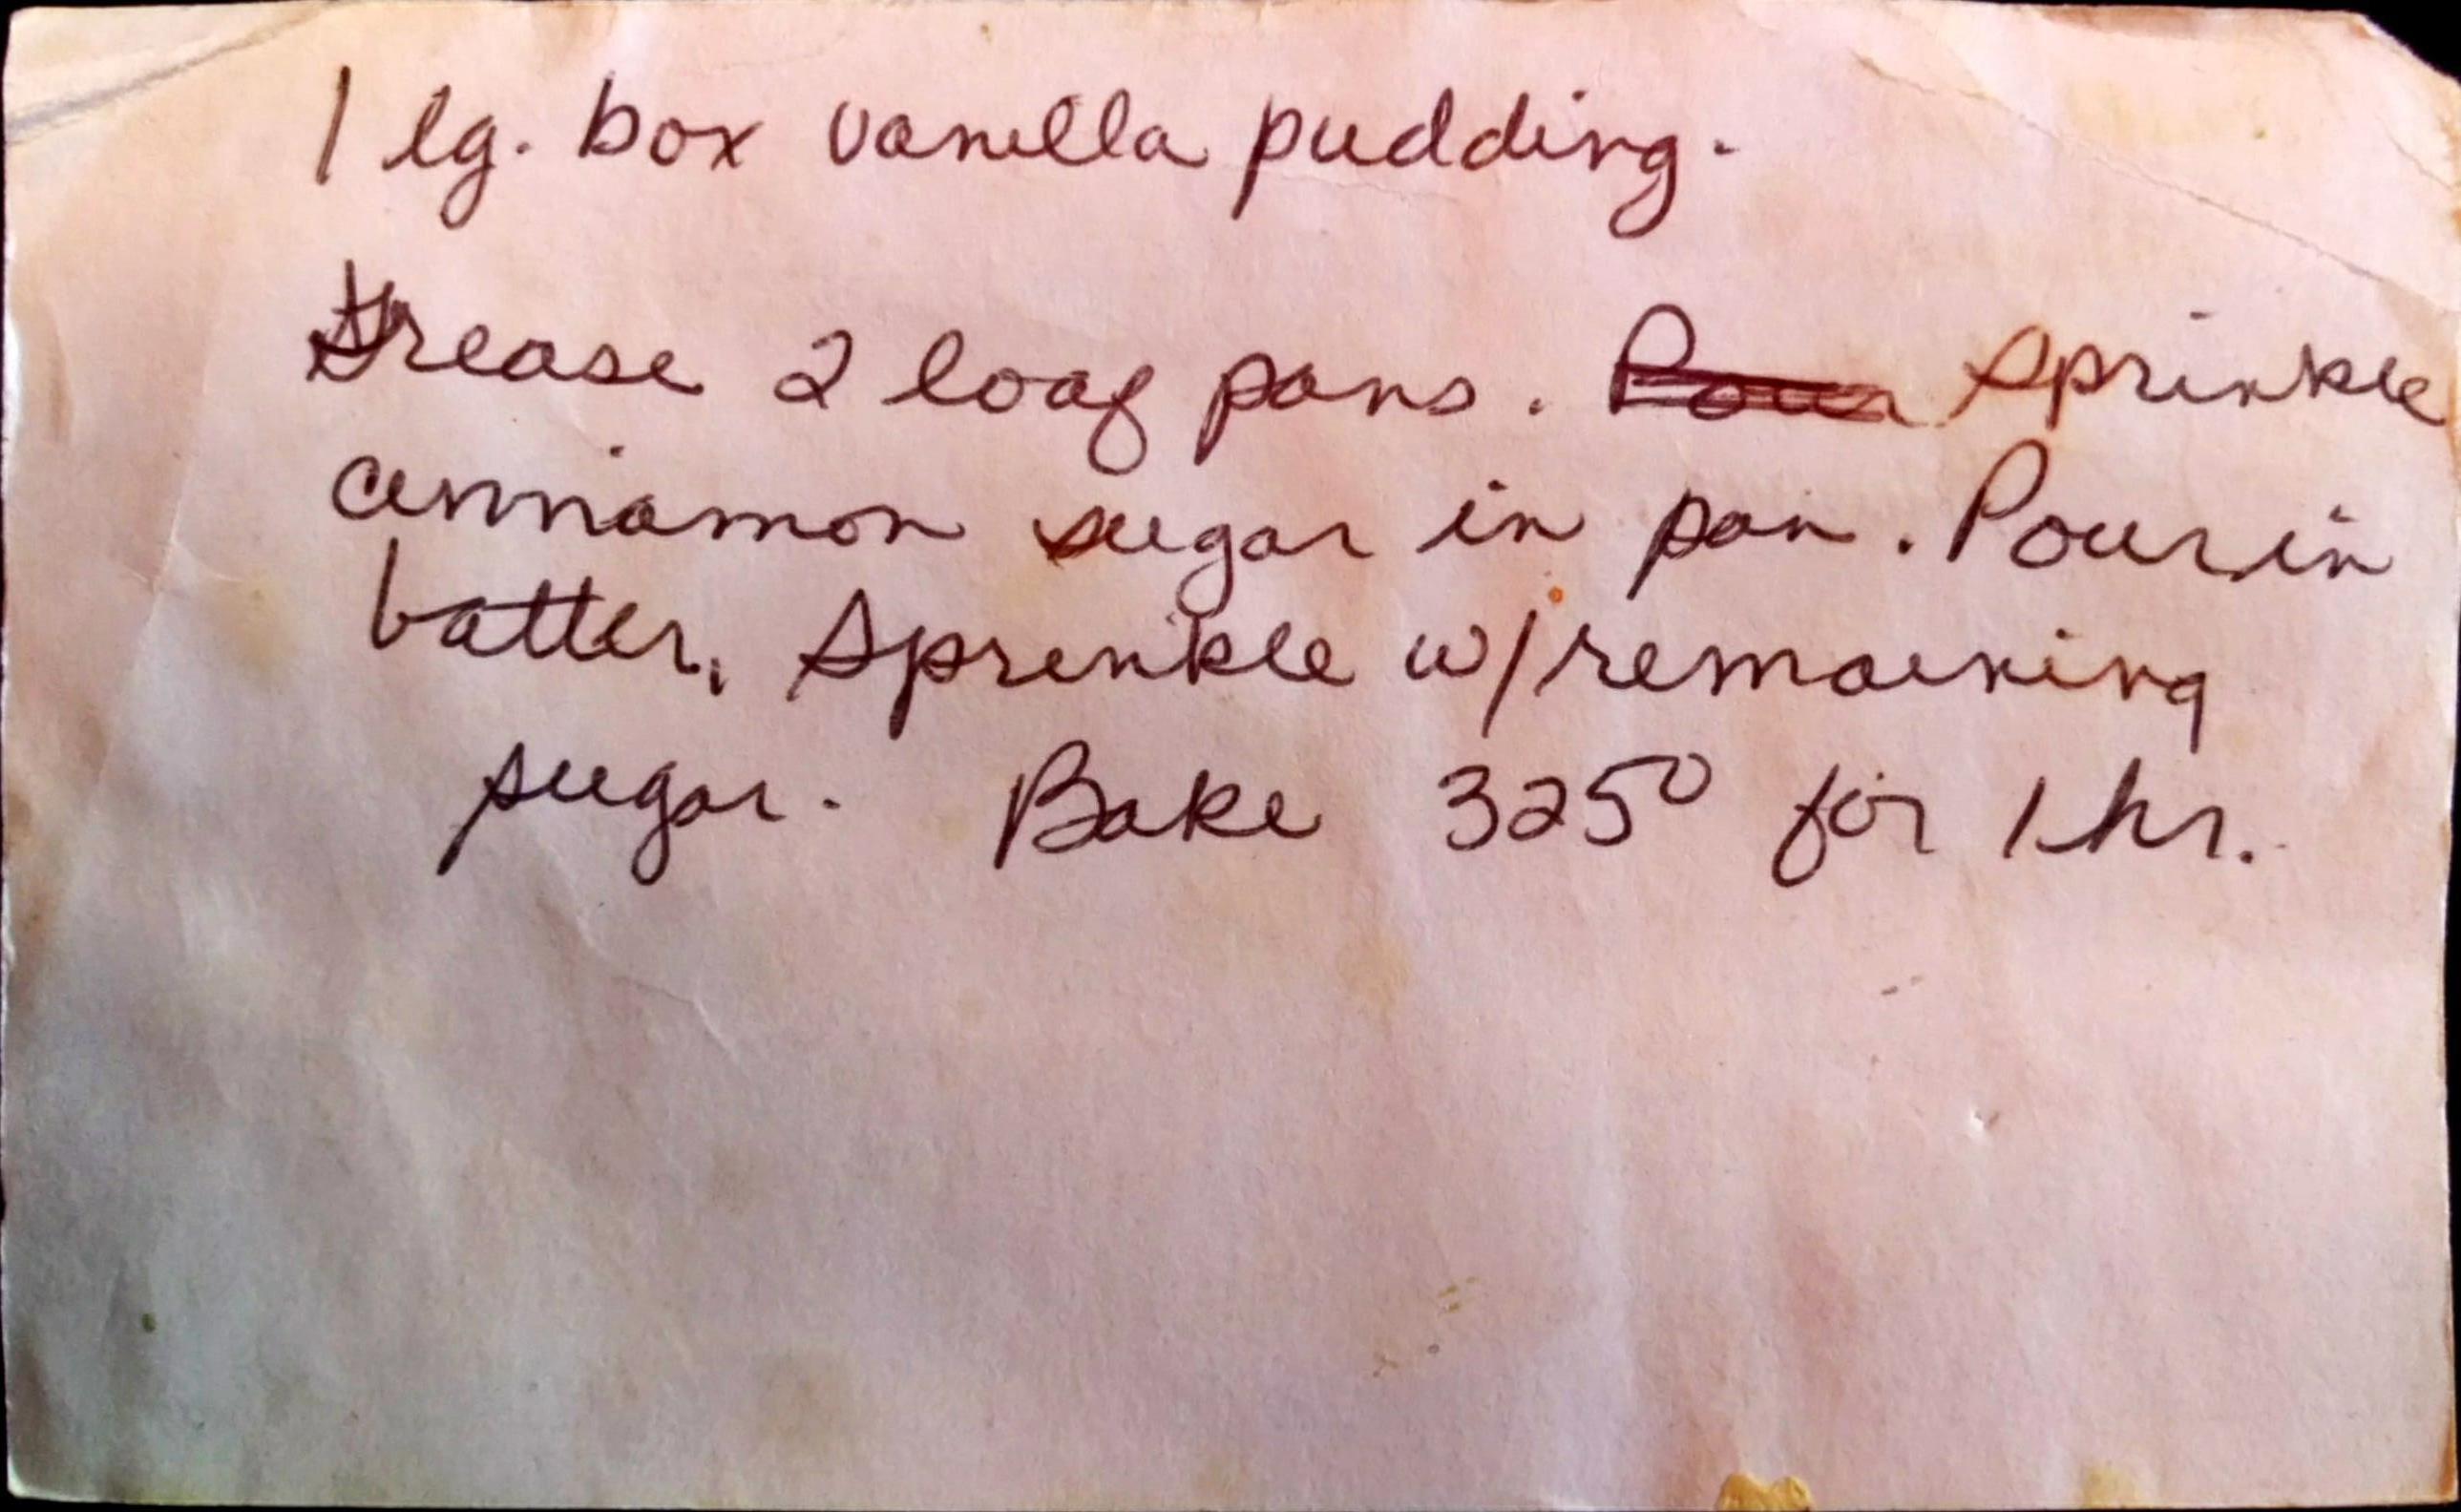 1 lg. box vanilla pudding.
Grease 2 loaf pans. Pour Sprinkle
cinnamon sugar in pan. Pour in
batter. Sprinkle w/ remaining
sugar. Bake 325° for 1 hr.